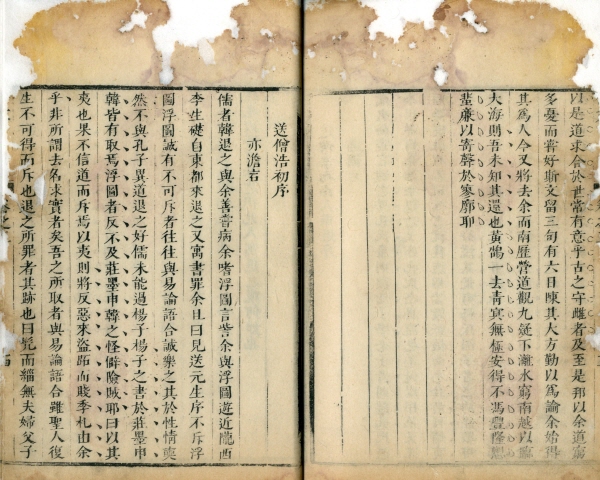 以是道求合於世常有意乎古之守雌者及至是邦以余道窮
多憂而嘗好斯文留三旬有六日陳其大方勤以為諭余始得
其為人今又將去余而南歷營道觀九疑下灕水窮南越以臨
大海則吾未知其還也黃鵠一去青冥無極安得不馮豐隆愬
蜚廉以寄聲於寥廓耶
送僧浩初序
亦澹宕
儒者韓退之與余善嘗病余嗜浮圖言訾余與浮圖遊近隴西
李生礎自東都來退之又寓書罪余且曰見送元生序不斥浮
圖浮圖誠有不可斥者往往與易論語合誠樂之其於性情奭
然不與孔子異道退之好儒未能過楊子楊子之書於莊墨申
韓皆有取焉浮圖者反不及莊墨申韓之怪僻險賊耶曰以其
夷也果不信道而斥焉以夷則將友惡來盜跖而賤季札由余
乎非所謂去名求實者矣吾之所取者與易論語合雖聖人復
生不可得而斥也退之所罪者其跡也曰髡而緇無夫婦父子